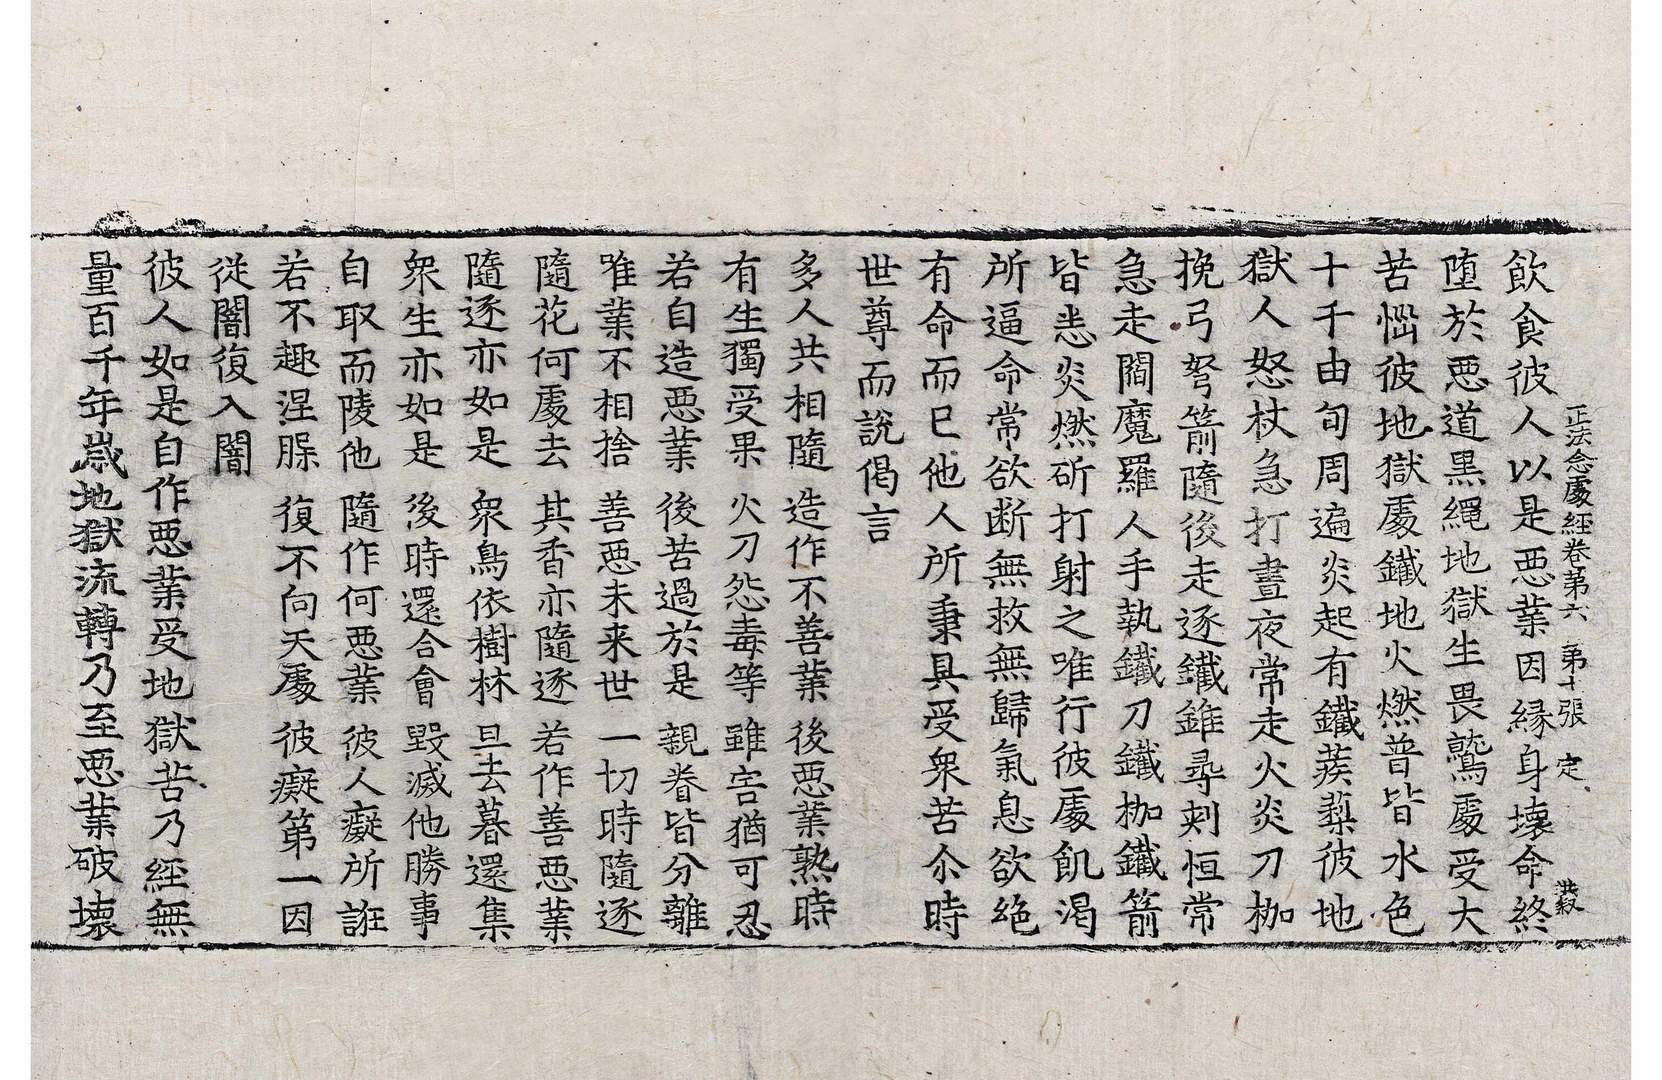 正法念處經卷第六　第十張　定
飮食彼人以是惡業因縁身壞命終
堕於惡道黒縄地獄生畏鷲處受大
苦惱彼地獄處鐵地火燃普皆水色
十千由旬周遍炎起有鐵蒺蔾彼地
獄人怒杖急打晝夜常走火炎刀枷
挽弓弩箭隨後走逐鐵錐尋刾恒常
急走閻魔羅人手執鐵刀鐵枷鐵箭
皆悉炎燃斫打射之唯行彼處飢渇
所逼命常欲断無救無歸氣息欲絶
有命而已他人所秉具受衆苦尒時
世尊而説偈言
多人共相隨　造作不善業　後惡業熟時
有生獨受果　火刀怨毒等　雖害猶可忍
若自造惡業　後苦過於是　親眷皆分離
唯業不相捨　善惡未来世　一切時隨逐
隨花何處去　其香亦隨逐　若作善惡業
隨逐亦如是　衆鳥依樹林　旦去暮還集
衆生亦如是　後時還合會　毀滅他勝事
自取而陵他　隨作何惡業　彼人癡所誑
若不趣涅槃　復不向天處　彼癡第一因
從闇復入闇
彼人如是自作惡業受地獄苦乃經無
量百千年歳地獄流轉乃至惡業破壞